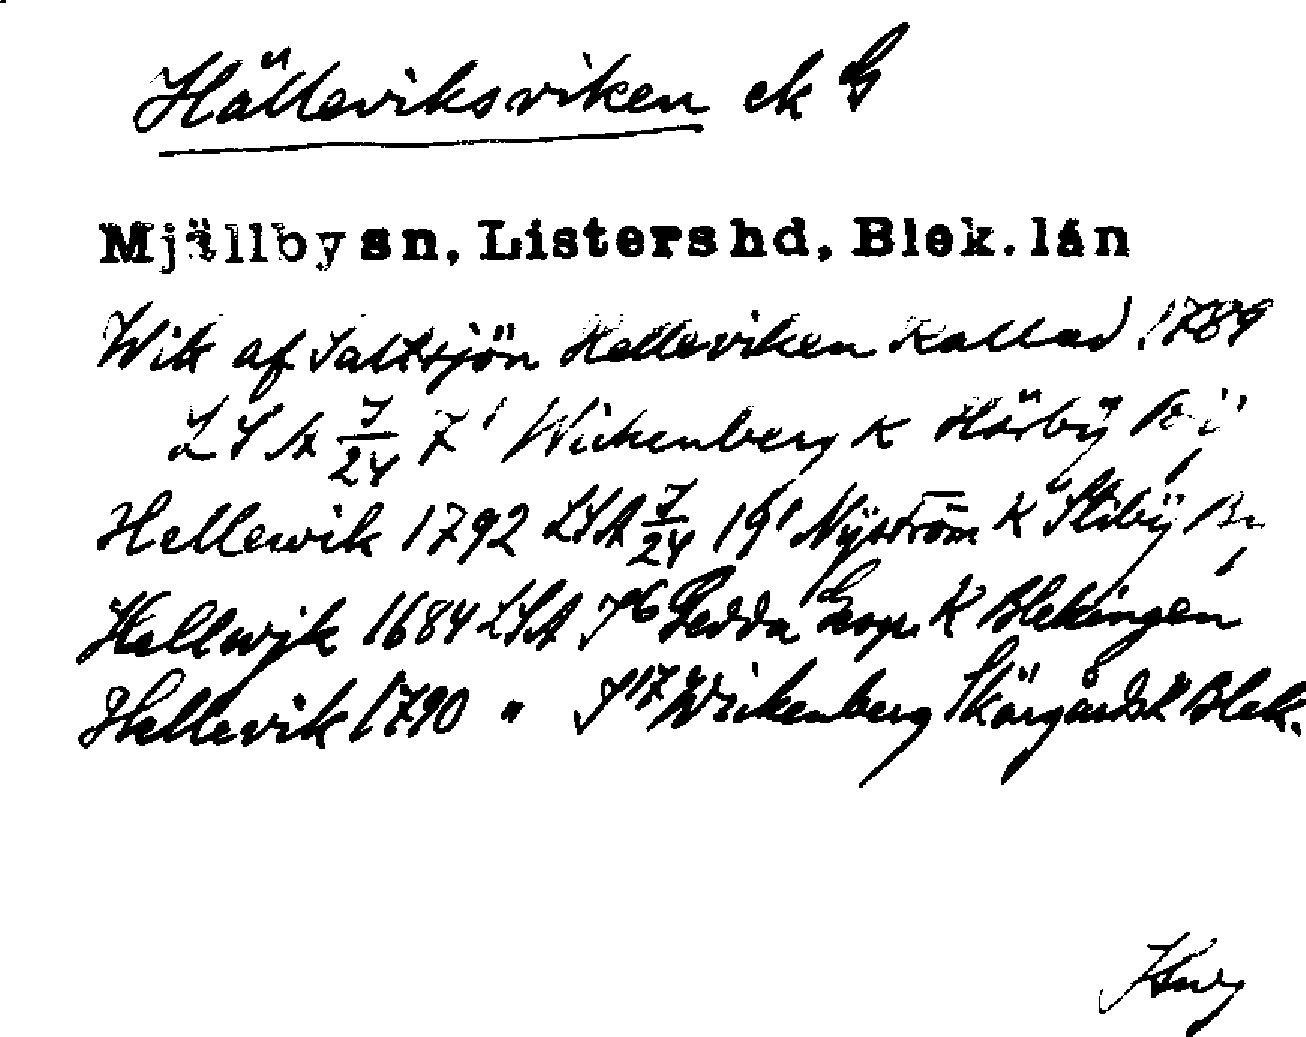 Hälleviksviken ek G
Mjällby sn, Listers hd, Blek. län
Wik af Saltsjön Helleviken kallad 1789
LSA 7/24 7' Wickenberg K Hörby
Hellewik 1792 LSA 7/24 19' Nyström K Stiby
Hellwijk 1684 LSA J 6 Gedda K Blekingen
Hellevik 1790 " J 17 Wickenberg Skärgårdsk Blek.